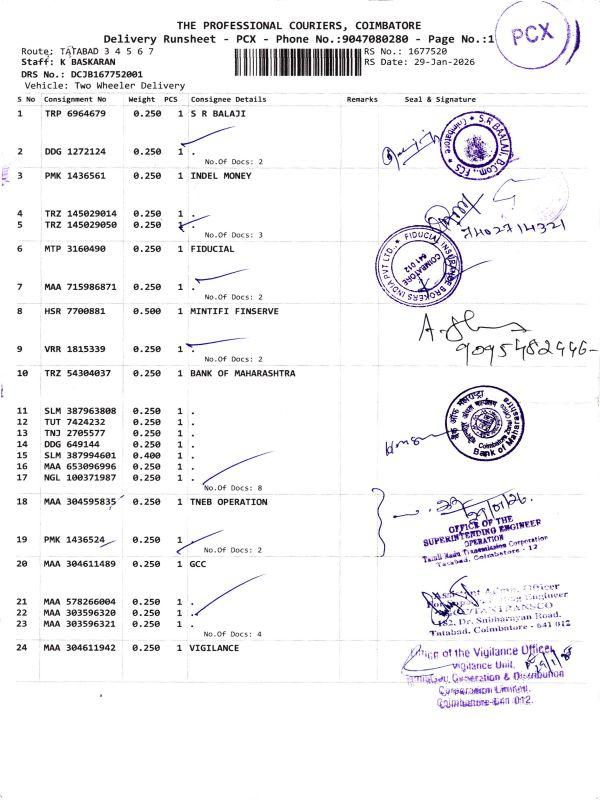 THE PROFESSIONAL COURIERS, COIMBATORE
Delivery Runsheet - PCX - Phone No.:9047080280 - Page No.:1
PCX
Route: TATABAD 3 4 5 6 7
RS No.: 1677520
Staff: K BASKARAN
RS Date: 29-Jan-2026
DRS No.: DCJB167752001
Vehicle: Two Wheeler Delivery
S No Consignment No Weight PCS Consignee Details Remarks Seal & Signature
1 TRP 6964679 0.250 1 S R BALAJI
2 DDG 1272124 0.250 1 .
No.Of Docs: 2
3 PMK 1436561 0.250 1 INDEL MONEY
4 TRZ 145029014 0.250 1 .
5 TRZ 145029050 0.250 1 .
No.Of Docs: 3
7402714321
6 MTP 3160490 0.250 1 FIDUCIAL
FIDUCIAL INSURANCE BROKERS INDIA PVT LTD.,
COIMBATORE
641 012
7 MAA 715986871 0.250 1 .
No.Of Docs: 2
8 HSR 7700881 0.500 1 MINTIFI FINSERVE
9 VRR 1815339 0.250 1 .
No.Of Docs: 2
9095482446
10 TRZ 54304037 0.250 1 BANK OF MAHARASHTRA
11 SLM 387963808 0.250 1 .
12 TUT 7424232 0.250 1 .
13 TNJ 2705577 0.250 1 .
14 DDG 649144 0.250 1 .
15 SLM 387994601 0.400 1 .
16 MAA 653096996 0.250 1 .
17 NGL 100371987 0.250 1 .
No.Of Docs: 8
Bank of Maharashtra
18 MAA 304595835 0.250 1 TNEB OPERATION
29/01/26.
OFFICE OF THE
SUPERINTENDING ENGINEER
OPERATION
Tamil Nadu Transmission Corporation
Tatabad, Coimbatore - 12
19 PMK 1436524 0.250 1 .
No.Of Docs: 2
20 MAA 304611489 0.250 1 GCC
21 MAA 578266004 0.250 1 .
22 MAA 303596320 0.250 1 .
23 MAA 303596321 0.250 1 .
No.Of Docs: 4
Officer
Engineer
182, Dr. Subbarayan Road.
Tatabad. Coimbatore - 641 012
24 MAA 304611942 0.250 1 VIGILANCE
Office of the Vigilance Officer
Vigilance Unit,
Generation & Distribution
Corporation Limited.
Coimbatore-641 012.